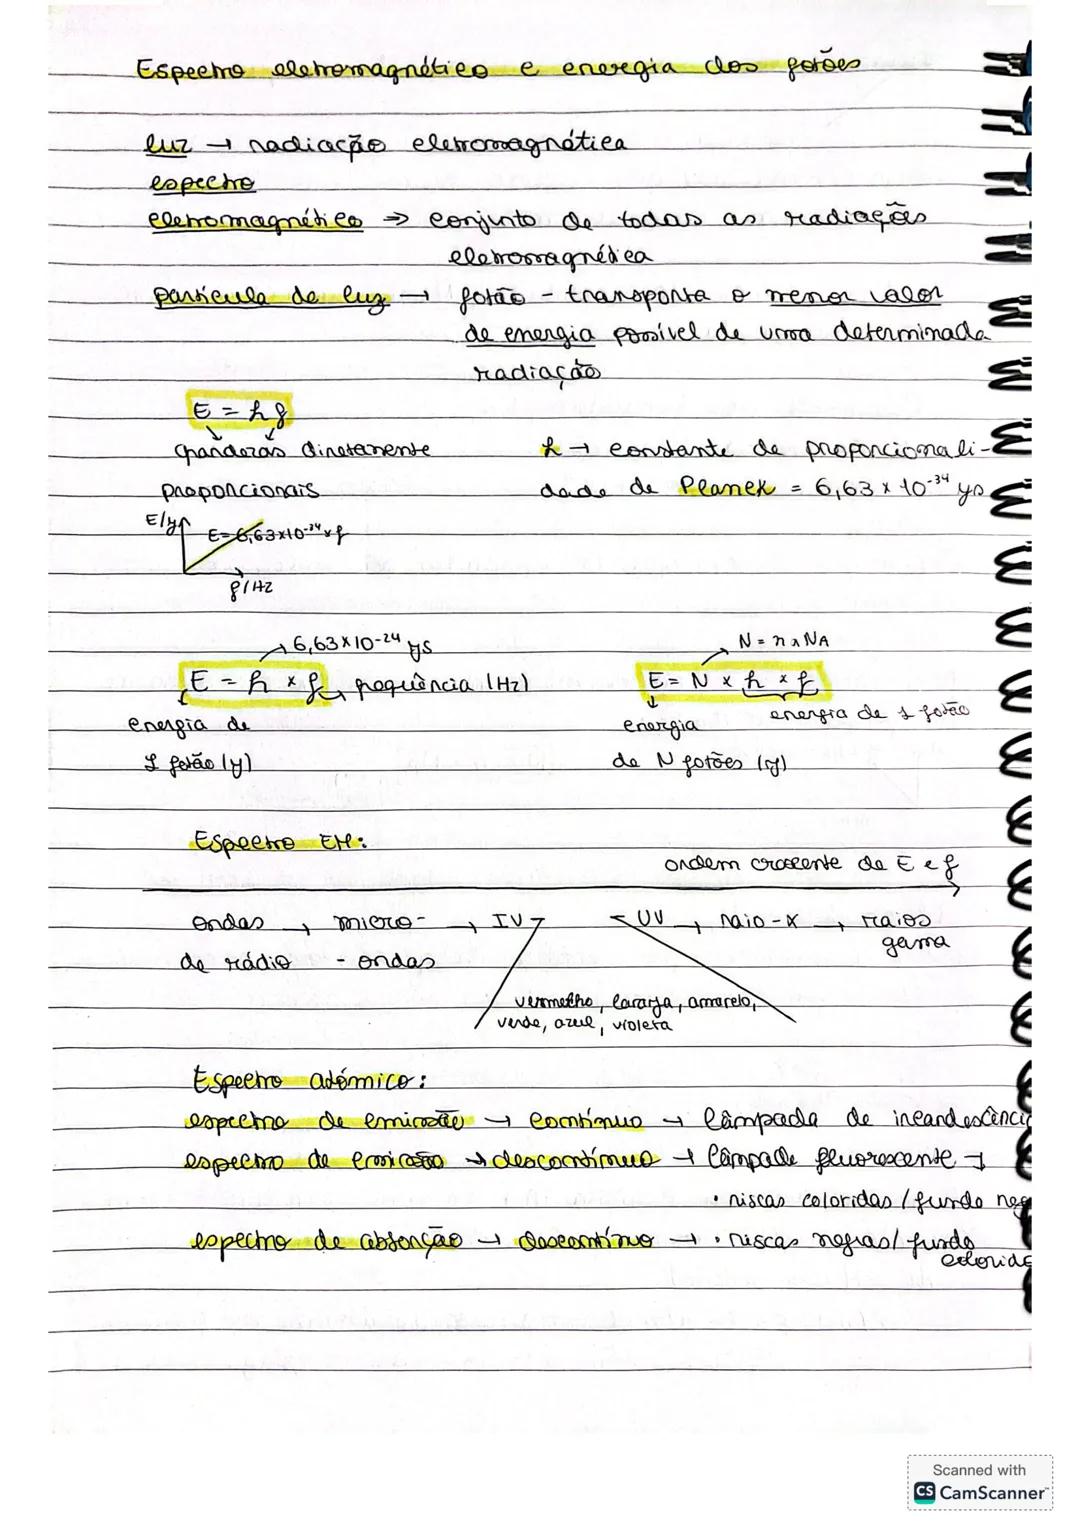 Espectro eletromagnético e energia dos fotões
luz → radiação eletromagnética
espectro
eletromagnético → conjunto de todas as radiações
eletromagnética
partícula de luz → fotão - transporta o menor valor
de energia possível de uma determinada
radiação
E = hf
grandezas diretamente
proporcionais
h → constante de proporcionali-
dade de Planck = 6,63 x 10⁻³⁴ Js
E/J
E=6,63x10⁻³⁴xf
f/Hz
6,63x10⁻²⁴ Js
E = h x f → frequência (Hz)
energia de
1 fotão (J)
N = n x NA
E = N x h x f
energia de 1 fotão
energia
de N fotões (J)
Espectro EM:
ordem crescente de E e f
ondas → micro- → IV UV → raio-X → raios
gama
de rádio - ondas
vermelho, laranja, amarelo,
verde, azul, violeta
Espectro atómico:
espectro de emissão → contínuo → lâmpada de incandescênci
espectro de emissão → descontínuo → lâmpada fluorescente →
• riscas coloridas / fundo neg
espectro de absorção → descontínuo → • riscas negras / fundo
colorido
Scanned with
CS CamScanner™